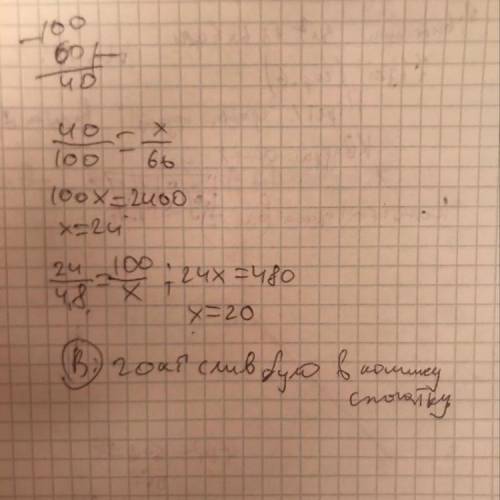 - 100
60
40
40/100 = x/60
100x = 2400
x = 24
24/4,8 = 100/x ; 24x = 480
x = 20
В: 20 кг слив було в кошику
спочатку